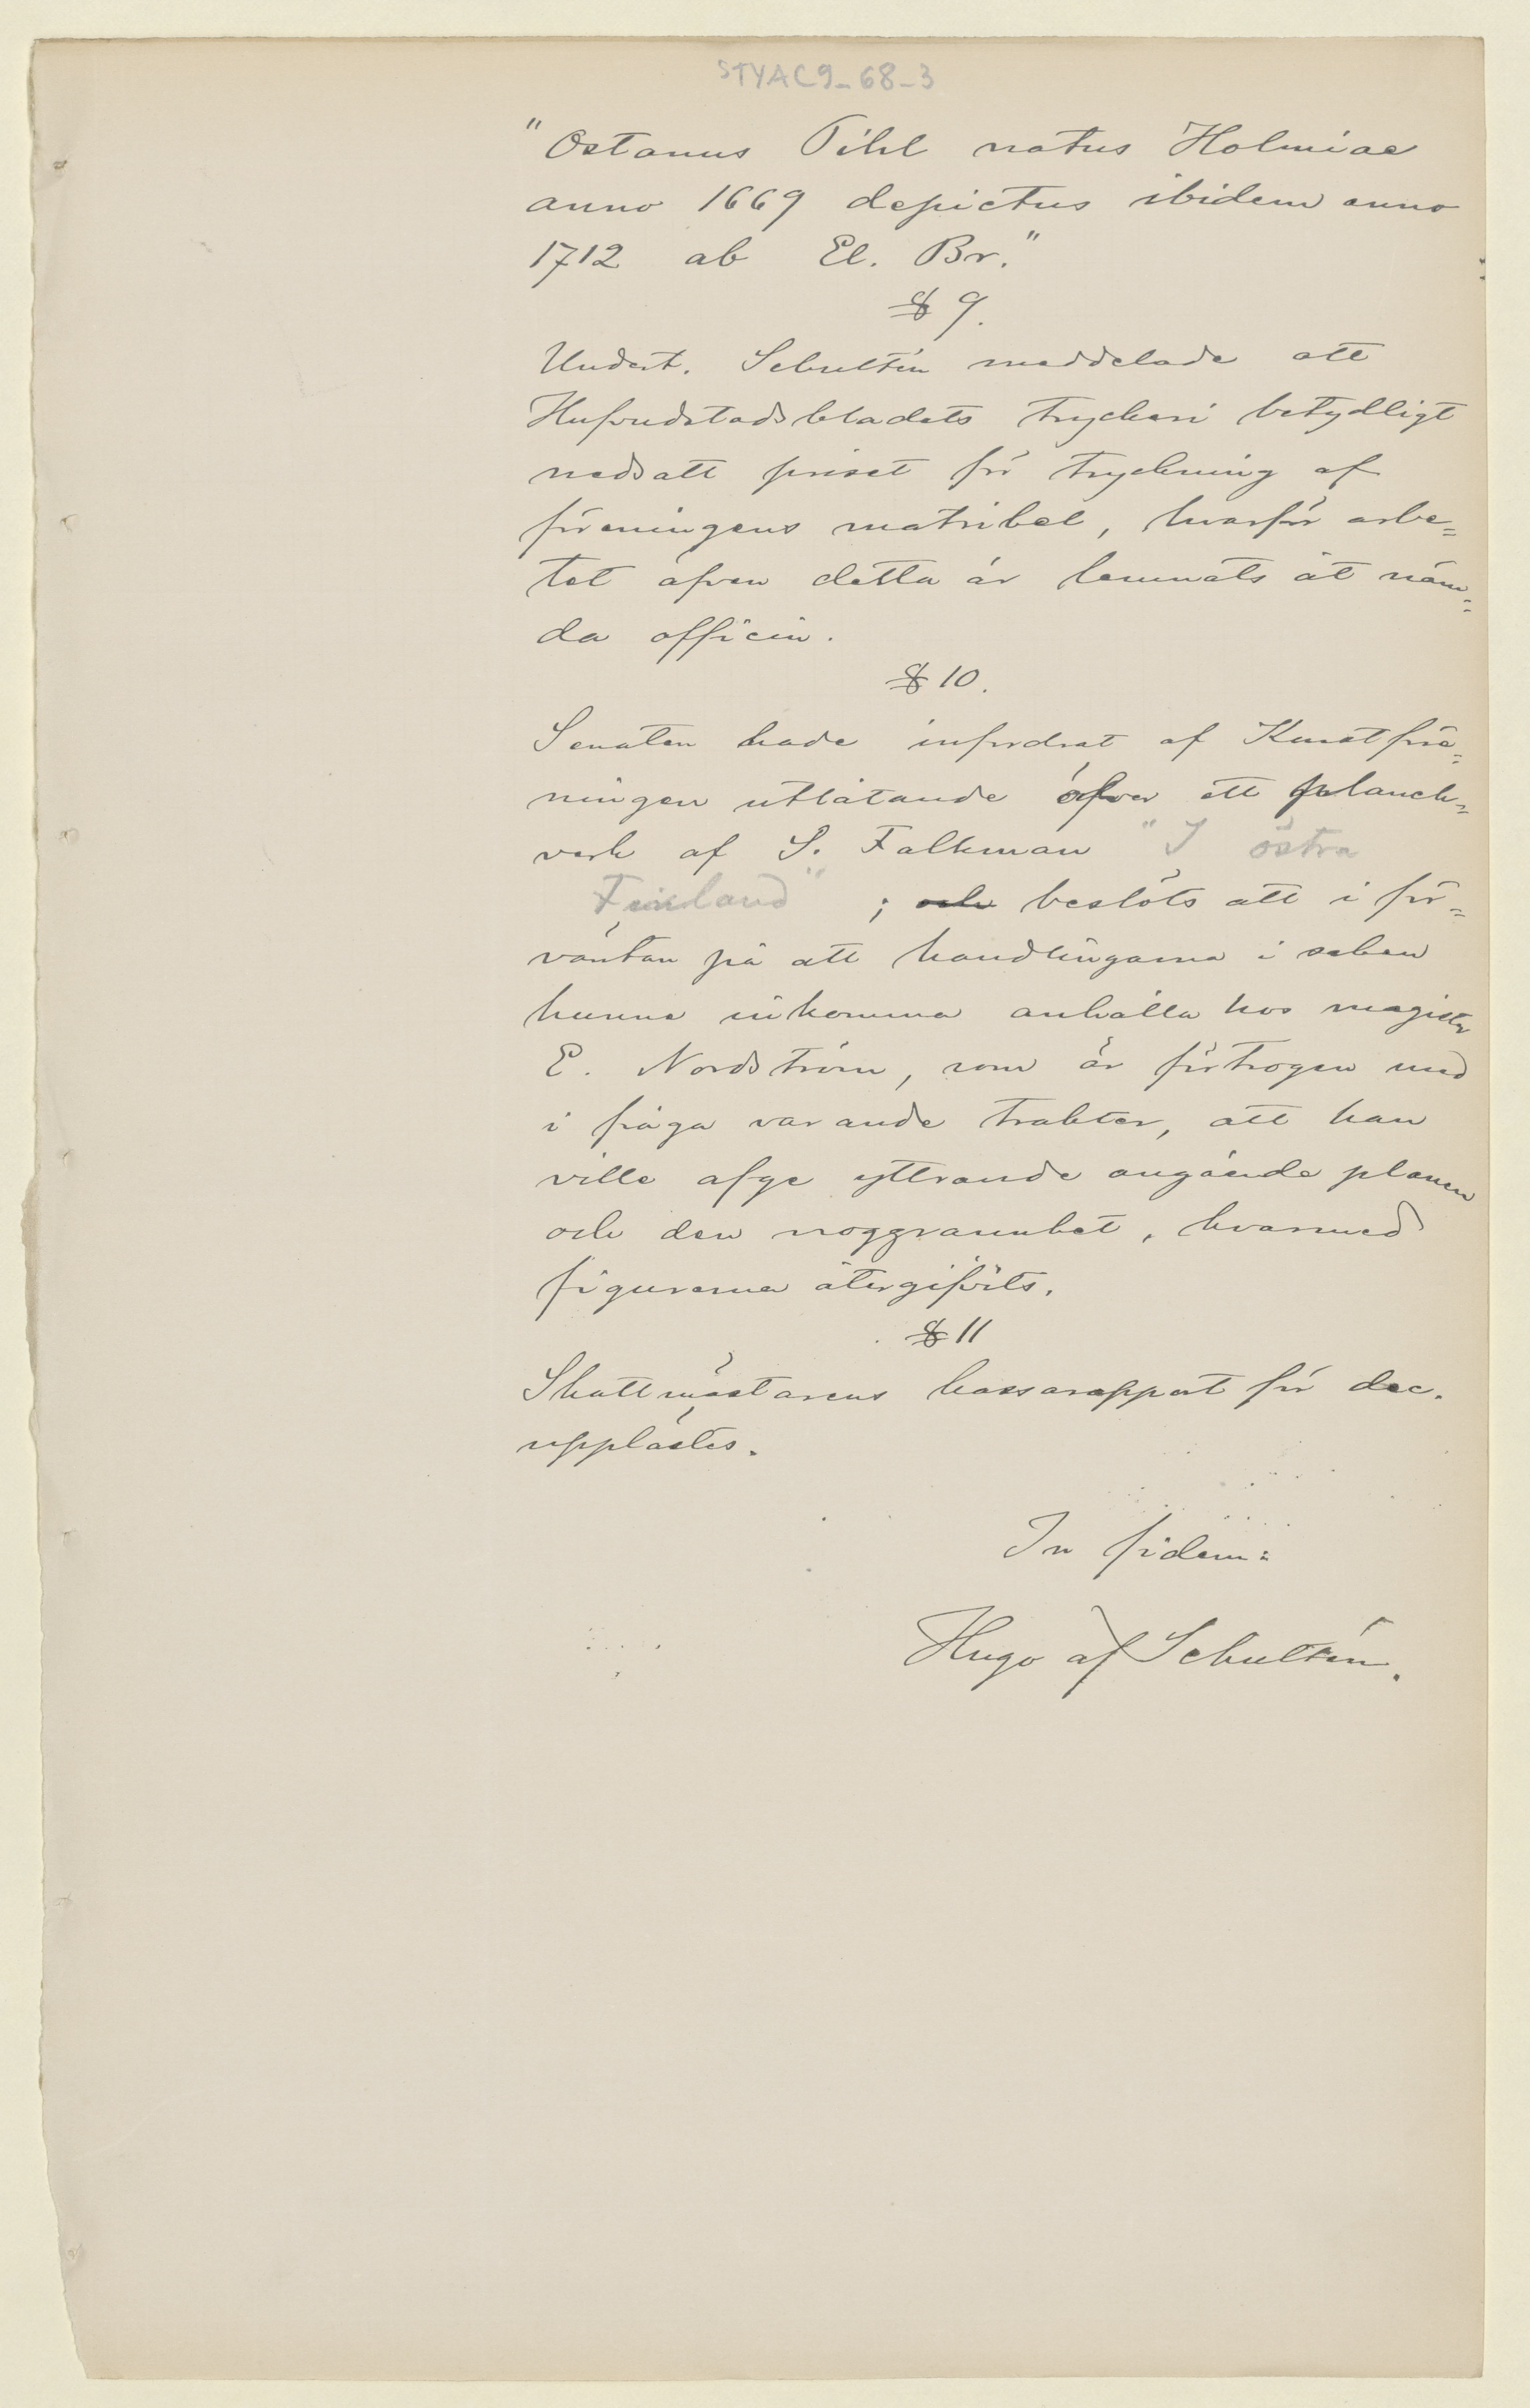 STYAC9_68_3
"Ostanus Pihl natus Holmiae
anno 1669 depictus ibidem anno
1712 ab El. Br."
§ 9.
Undert. Schultén meddelade att
Hufvudstadsbladets tryckeri betydligt
nedsatt priset för tryckning af
föreningens matrikel, hvarför arbe=
tet äfven detta år lemnats åt näm=
da officin.
§ 10.
Senaten hade infordrat af Konstföre=
ningen utlåtande öfver ett planch=
verk af S. Falkman "I östra
Finland" ; och beslöts att i för=
väntan på att handlingarna i saken
hunne inkomma anhålla hos magister
E. Nordström, som är förtrogen med
i fråga varande trakter, att han
ville afge yttrande angående planen
och den noggrannhet, hvarmed
figurerna återgifvits.
§ 11
Skattmästarens kassarapport för dec.
upplästes.
In fidem:
Hugo af Schultén.